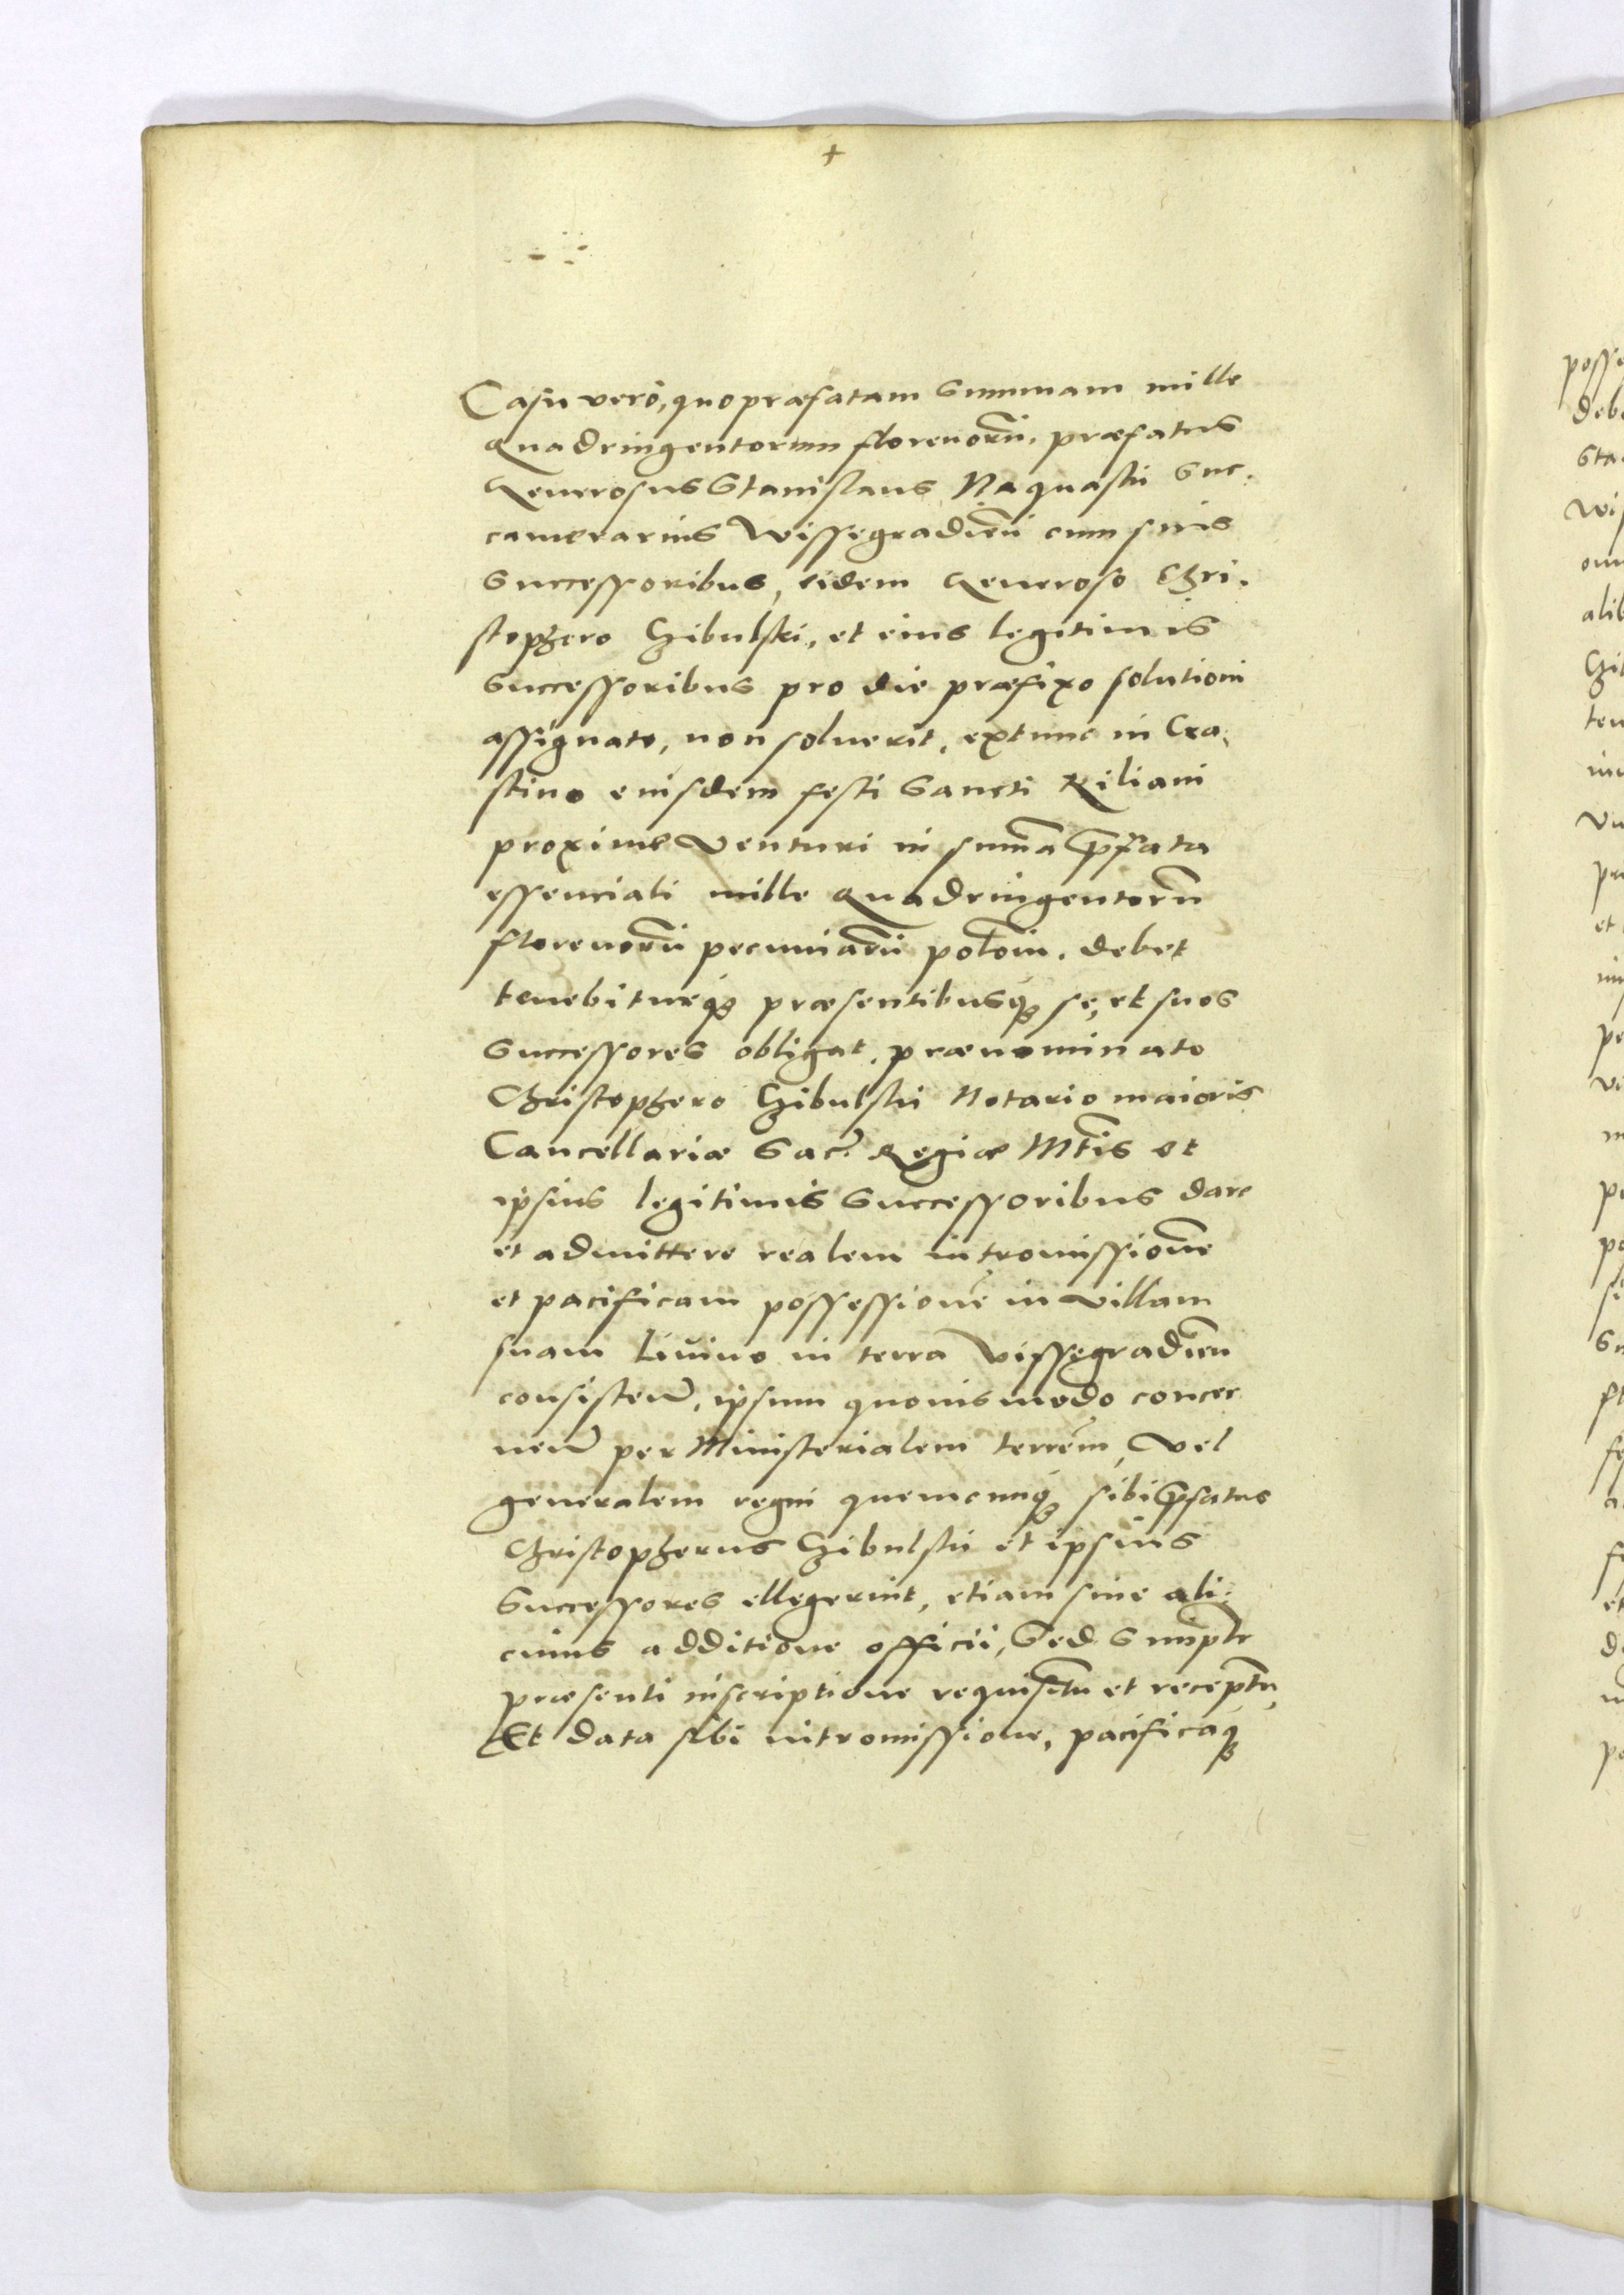 +
Casu verò, quo præfatam Summam mille
Quadringentorum florenorū, præfatus
Generosus Stanislaus Naquaski Suc-
camerarius Wissegradieñ cum suis
Successoribus, eidem Generoso Chri-
stophero Gzibulski, et eius legitimis
Successoribus pro die præfixo solutioni
assignato, non soluerit, extunc in Cra-
stino eiusdem festi Sancti Kiliani
proxime Venturi in summa p̄fata
essenciali mille Quadringentorū
florenorū pecuniarū poloñ. debet
tenebiturq3 præsentibusq3 se, et suos
Successores obligat, prænominato
Christophero Gzibulski Notario maioris
Cancellariæ Sac: Regiæ Mtis et
ipsius legitimis Successoribus dare
et admittere realem intromissionē
et pacificam possessionē in villam
suam Liuino in terra Vissegradieñ
consisteñ, ipsum quouismodo concer
neñ per Ministerialem terreñ, Vel
generalem regni quemcunq3 sibi p̄fatus
Christopherus Gzibulski et ipsius
Successores ellegerint, etiam sine ali-
cuius additione officii, Sed Simplr
præsenti inscriptione requisitū et receptū,
Et data sibi intromissione, pacificaq3
posse
debe
Sta